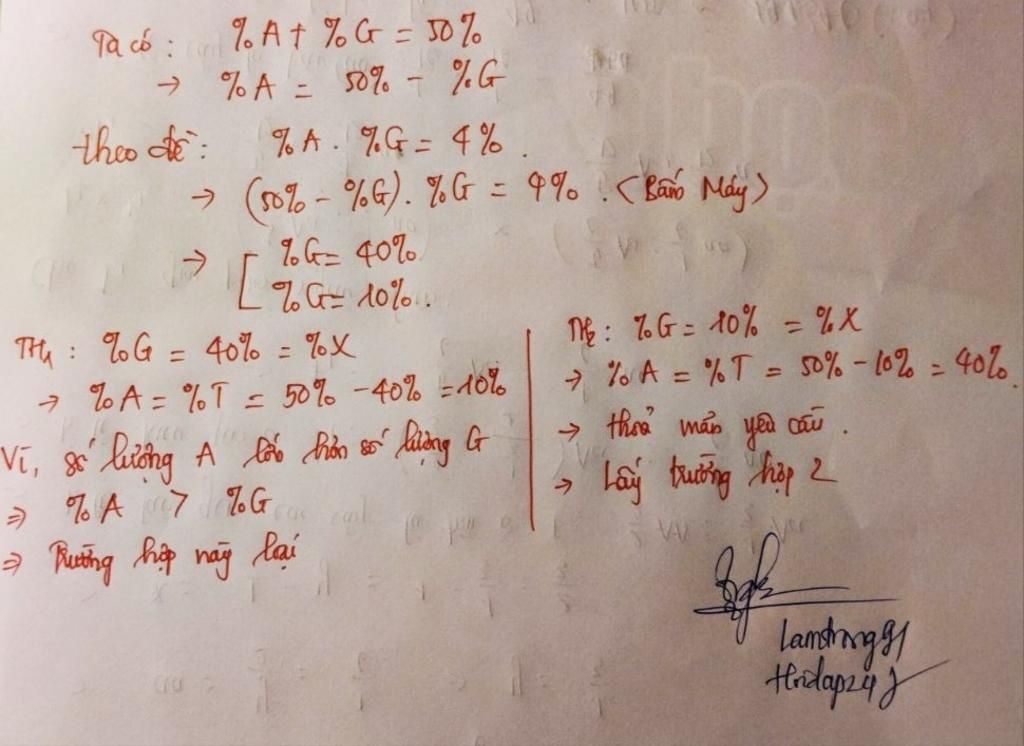 Ta có : %A + %G = 50%
→ %A = 50% - %G
theo đề: %A . %G = 4% .
→ (50% - %G). %G = 4% . (Bấm Máy)
→ [ %G = 40%
%G = 10% .
TH1 : %G = 40% = %X
→ %A = %T = 50% - 40% = 10%
Vì, số lượng A lớn hơn số lượng G
⇒ %A > %G
⇒ Trường hợp này loại
TH2 : %G = 10% = %X
→ %A = %T = 50% - 10% = 40% .
→ thoả mãn yêu cầu .
→ Lấy trường hợp 2